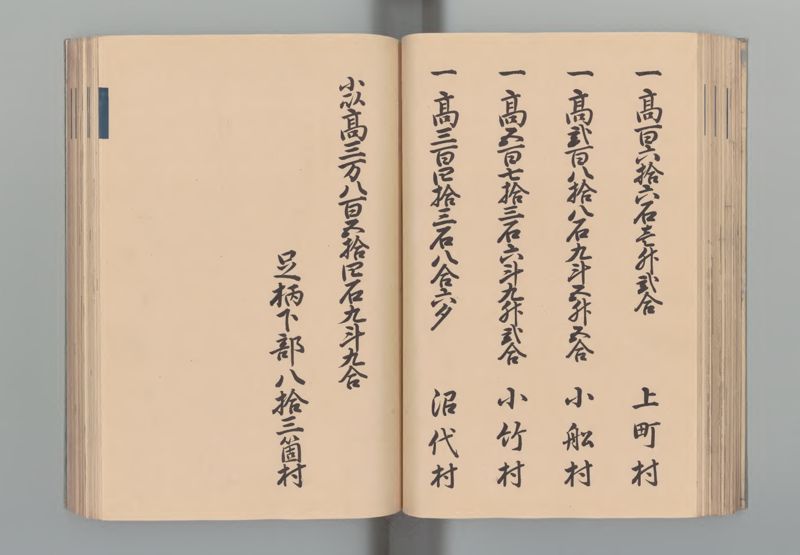 一高百六拾六石壱升弐合 上町村
一高弐百八拾八石九斗五升五合 小船村
一高五百七拾三石六斗九升弐合 小竹村
一高三百四拾三石八合六夕 沼代村
小以高三万八百五拾四石九斗九合
足柄下郡八拾三箇村